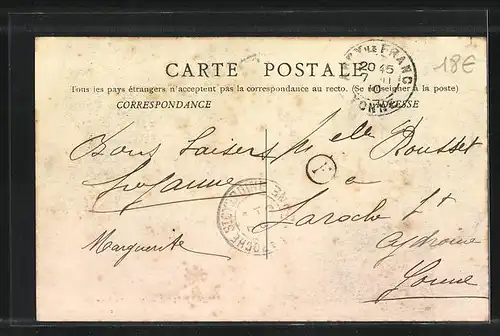 18€
CARTE POSTALE
Tous les pays étrangers n'acceptent pas la correspondance au recto. (Se renseigner à la poste)
CORRESPONDANCE
ADRESSE
Bons baisers
Suzanne
Marguerite
Melle Rousset
a
Laroche St
Cydroine
Yonne